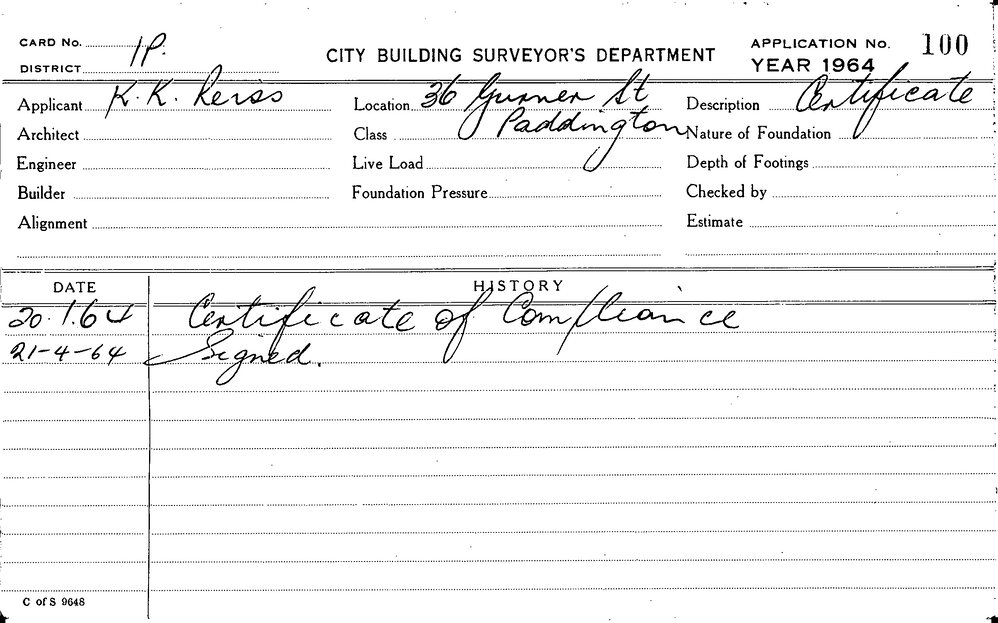 CARD No. 1P.
DISTRICT
CITY BUILDING SURVEYOR'S DEPARTMENT
APPLICATION No. 100
YEAR 1964
Applicant K. K. Reiss Location 36 Gurner St Description Certificate
Architect Class Paddington Nature of Foundation
Engineer Live Load Depth of Footings
Builder Foundation Pressure Checked by
Alignment Estimate
DATE HISTORY
20.1.64 Certificate of Compliance
21-4-64 Signed.
C of S 9648